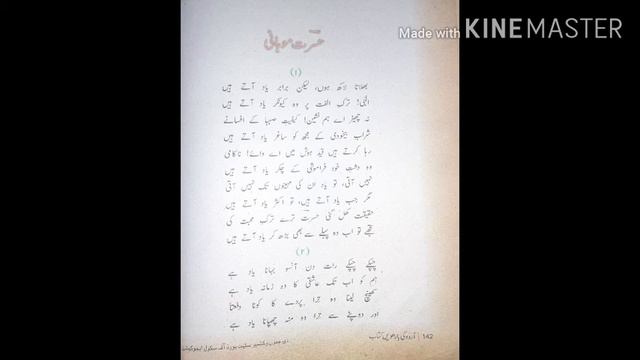 Made with KINEMASTER
حسرت موہانی
(۱)
بھلاتا لاکھ ہوں، لیکن برابر یاد آتے ہیں
الٰہی! ترکِ الفت پر وہ کیونکر یاد آتے ہیں
نہ چھیڑ اے ہم نشیں! کیفیتِ صہبا کے افسانے
شرابِ بیخودی کے مجھ کو ساغر یاد آتے ہیں
رہا کرتے ہیں قیدِ ہوش میں اے وائے! ناکامی
وہ دشتِ خود فراموشی کے چکر یاد آتے ہیں
نہیں آتی، تو یاد ان کی مہینوں تک نہیں آتی
مگر جب یاد آتے ہیں، تو اکثر یاد آتے ہیں
حقیقت کھل گئی حسرتؔ ترے ترکِ محبت کی
تجھے تو اب وہ پہلے سے بھی بڑھ کر یاد آتے ہیں
(۲)
چپکے چپکے رات دن آنسو بہانا یاد ہے
ہم کو اب تک عاشقی کا وہ زمانہ یاد ہے
کھینچ لینا وہ مرا پردے کا کونا دفعتاً
اور دوپٹے سے ترا وہ منہ چھپانا یاد ہے
142 اُردو کی بارھویں کتاب
دی جموں و کشمیر سٹیٹ بورڈ آف سکول ایجوکیشن